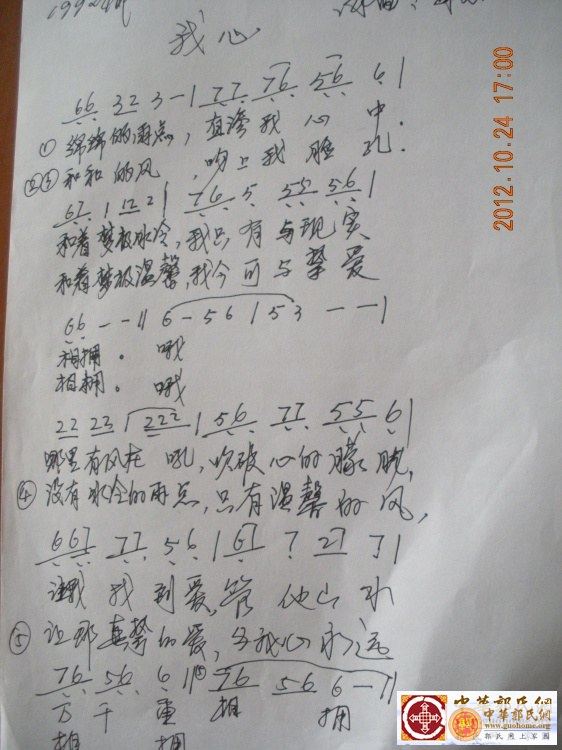 1992年
我心
66 32 3-| 77 76 56 6|
① 绵绵的雨点,直渗我心中.
②③ 和和的风,吻上我脸孔.
67 1 12 2| 76 5 55 56|
和着梦极冰冷,我只有与现实
和着梦极温馨,我今可与挚爱
66 - - || 6 - 56 | 53 - - |
相拥。 哦
相拥。 哦
22 23 | 222 | 56 77 55 6|
哪里有风在吼,吹破心的朦胧,
④ 没有冰冷的雨点,只有温馨的风,
667 77 56 | 67 7 27 7|
让我找到爱,管他山水
⑤ 让那真挚的爱,与我心永远
76 56 6 || 76 56 6 - ||
万千重 相拥
相拥
2012.10.24 17:00
中華郭氏網
中華郭氏網
www.guohome.org
郭氏網上家園